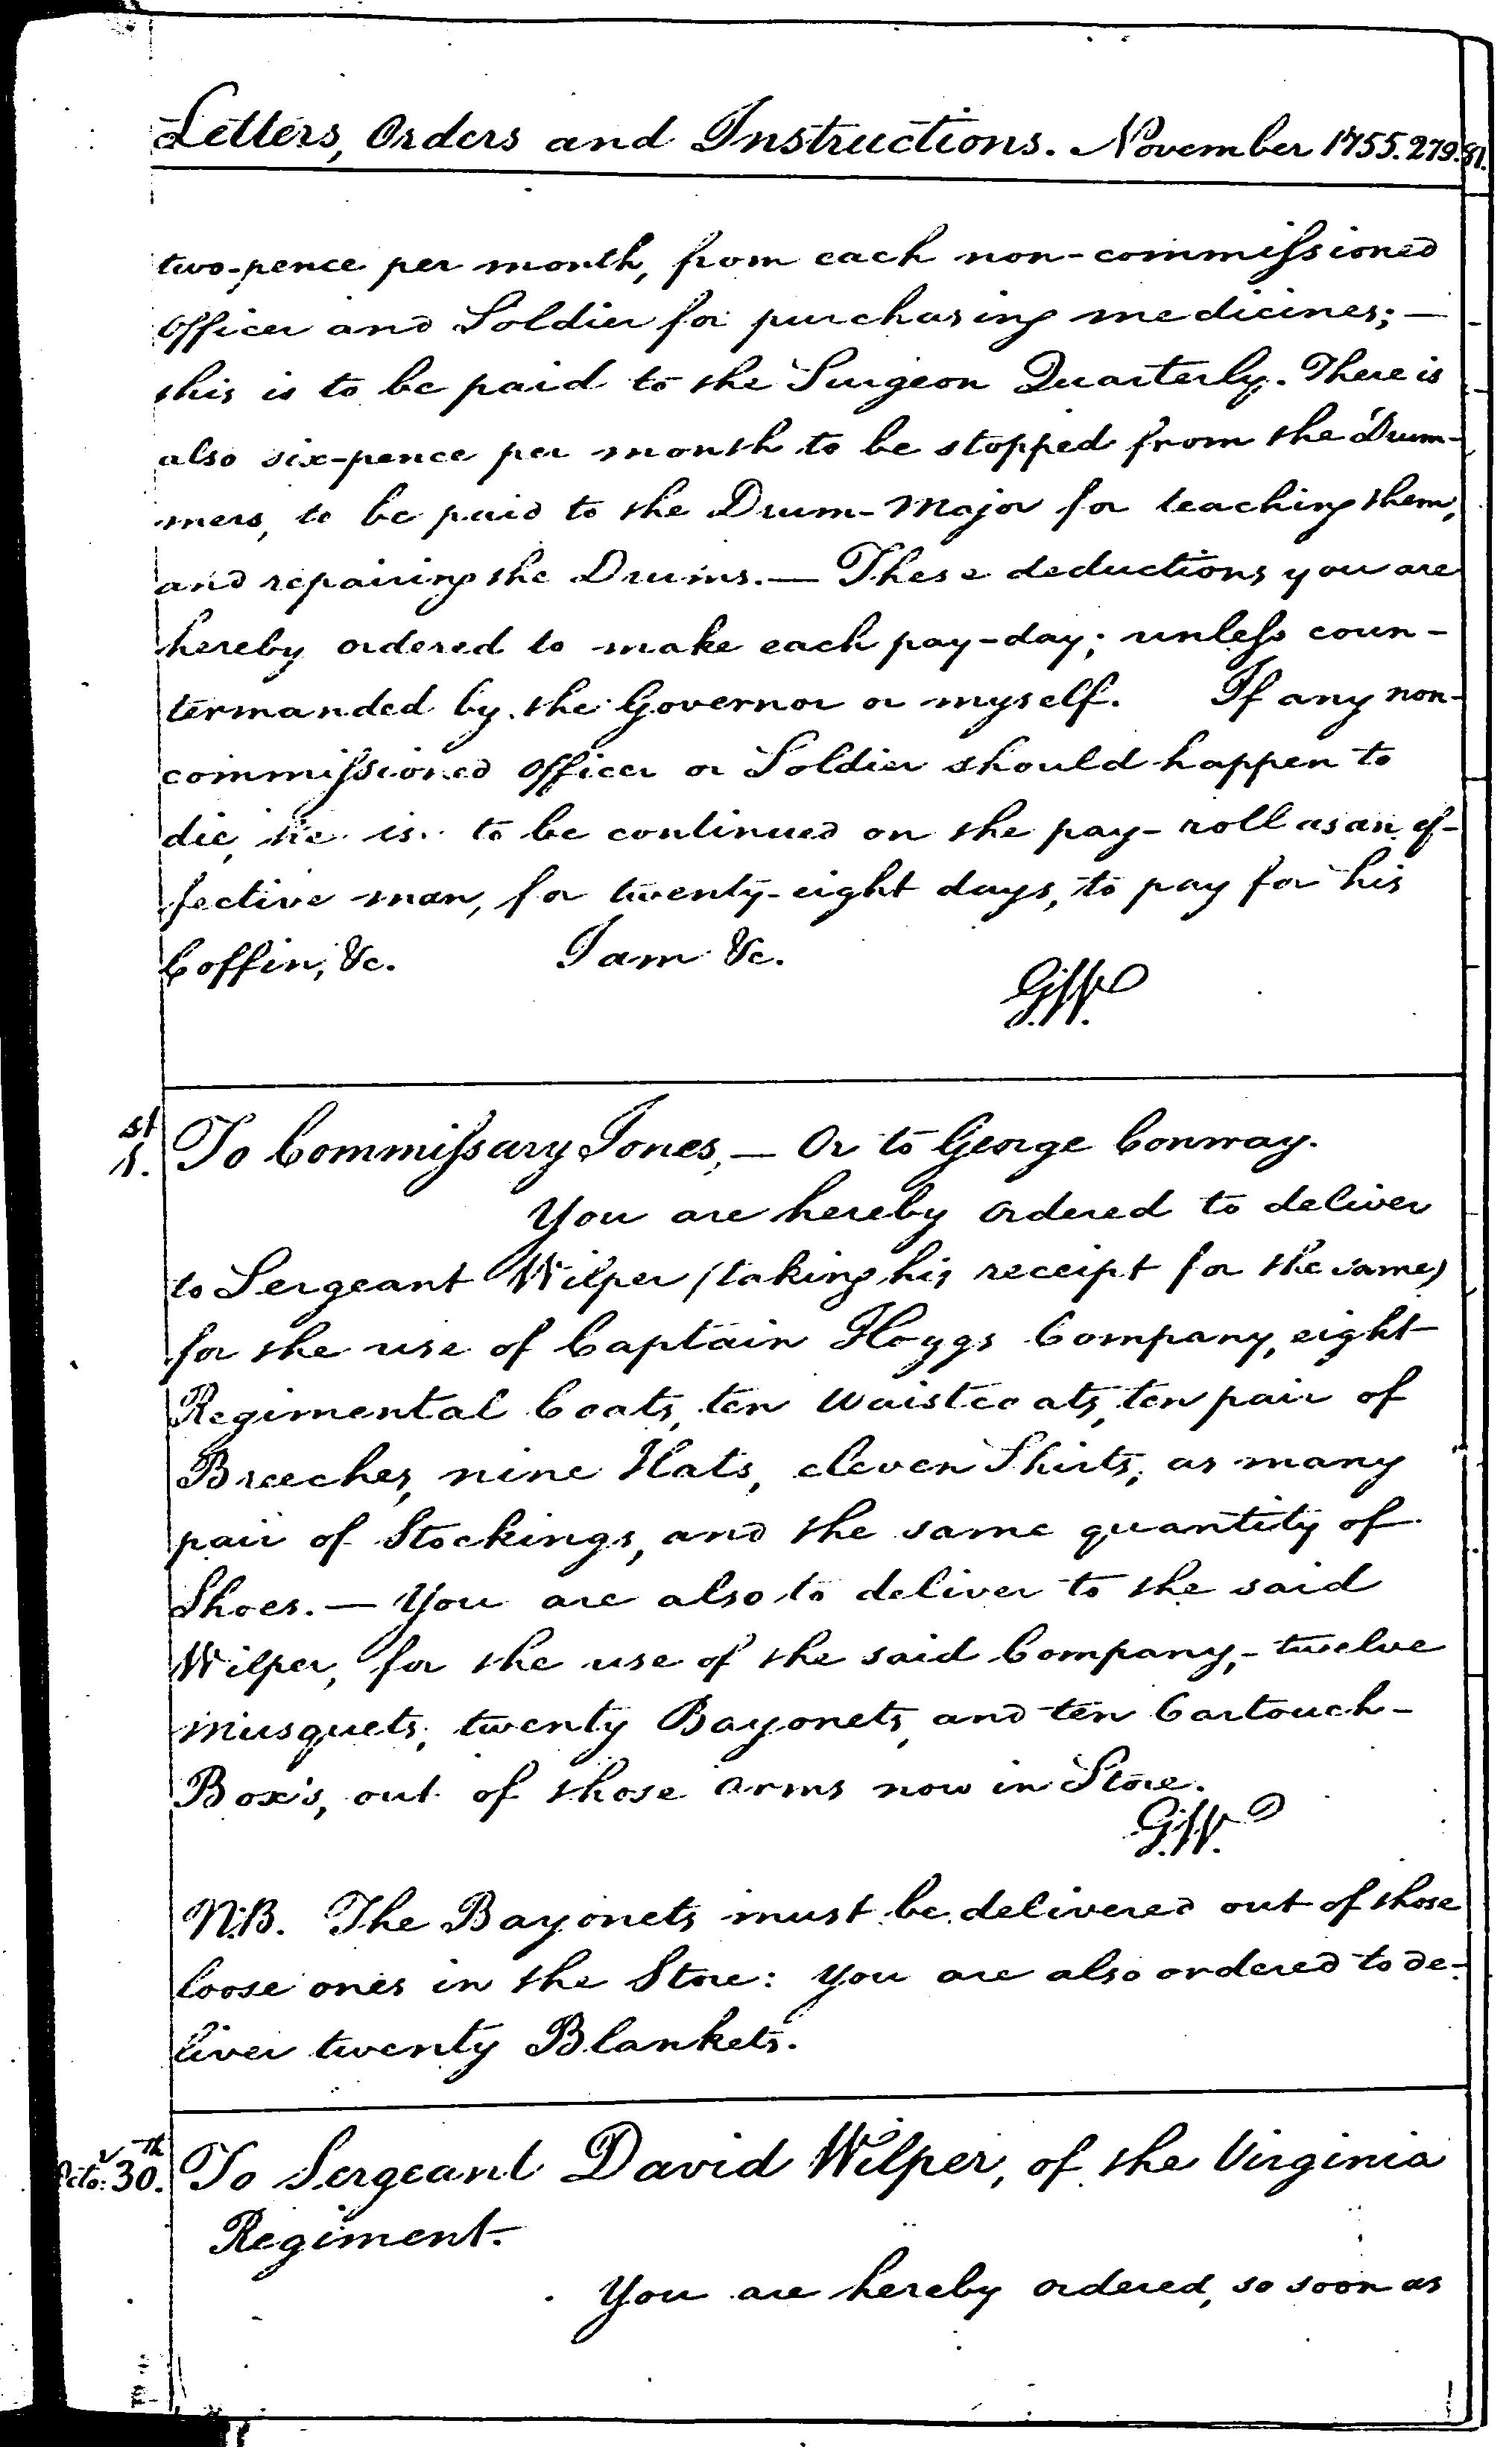 Letters, Orders and Instructions. November 1755. 279. 81.
two-pence per month, from each non-commissioned
Officer and Soldier for purchasing medicines; —
this is to be paid to the Surgeon Quarterly. There is
also six-pence per month to be stopped from the Drum-
mers, to be paid to the Drum-Major for teaching them,
and repairing the Drums. — These deductions you are
hereby ordered to make each pay-day; unless coun-
termanded by the Governor or myself. If any non-
commissioned Officer or Soldier should happen to
die, he is to be continued on the pay-roll as an ef-
fective man, for twenty-eight days, to pay for his
Coffin, &c. I am &c.
G:W.
1.st To Commissary Jones, — Or to George Conway.
You are hereby ordered to deliver
to Sergeant Wilper (taking his receipt for the same)
for the use of Captain Hoggs Company, eight
Regimental Coats, ten Waistcoats, ten pair of
Breeches, nine Hats, eleven Shirts, as many
pair of Stockings, and the same quantity of
Shoes. — You are also to deliver to the said
Wilper, for the use of the said Company, - twelve
Musquets, twenty Bayonets, and ten Cartouch-
Box's, out of those arms now in Store.
G:W.
N:B. The Bayonets must be delivered out of those
loose ones in the Store: You are also ordered to de-
liver twenty Blankets.
Octo: 30.th To Sergeant David Wilper, of the Virginia
Regiment.
You are hereby ordered, so soon as